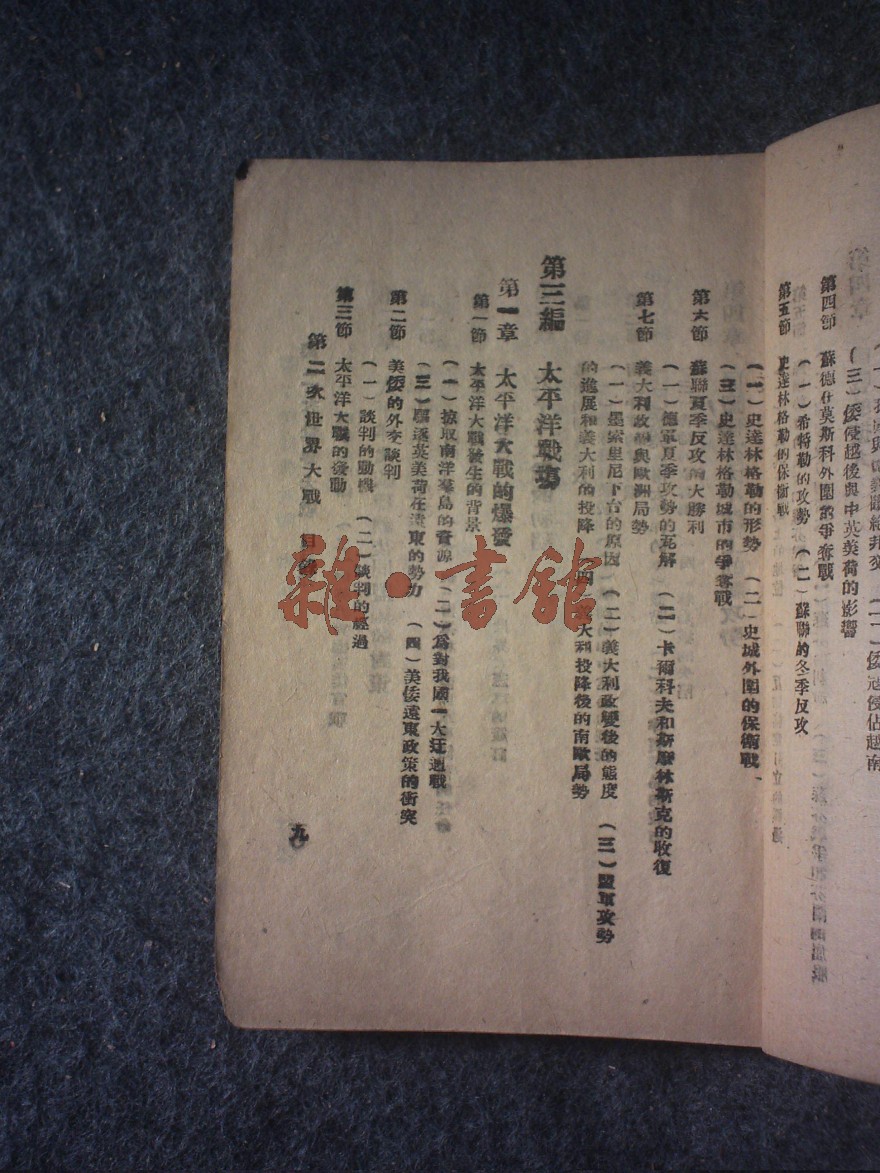 (三)倭侵越後與中英美荷的影響
第四節 蘇德在莫斯科外圍的爭奪戰
(一)希特勒的攻勢 (二)蘇聯的冬季反攻
第五節 史達林格勒的保衛戰
(一)史達林格勒的形勢 (二)史城外圍的保衛戰
(三)史達林格勒城市的爭奪戰
第六節 蘇聯夏季反攻的大勝利
(一)德軍夏季攻勢的瓦解 (二)卡爾科夫和斯摩林斯克的收復
第七節 義大利政變與歐洲局勢
(一)墨索里尼下台的原因 (二)義大利政變後的態度 (三)盟軍攻勢
的進展和義大利的投降 (四)義大利投降後的南歐局勢
第三編 太平洋戰場
第一章 太平洋大戰的爆發
第一節 太平洋大戰發生的背景
(一)掠取南洋羣島的資源 (二)為對我國一大迂迴戰
(三)驅逐英美荷在遠東的勢力 (四)美倭遠東政策的衝突
第二節 美倭的外交談判
(一)談判的動機 (二)談判的經過
第三節 太平洋大戰的發動
第二次世界大戰 目錄
九
雜·書館